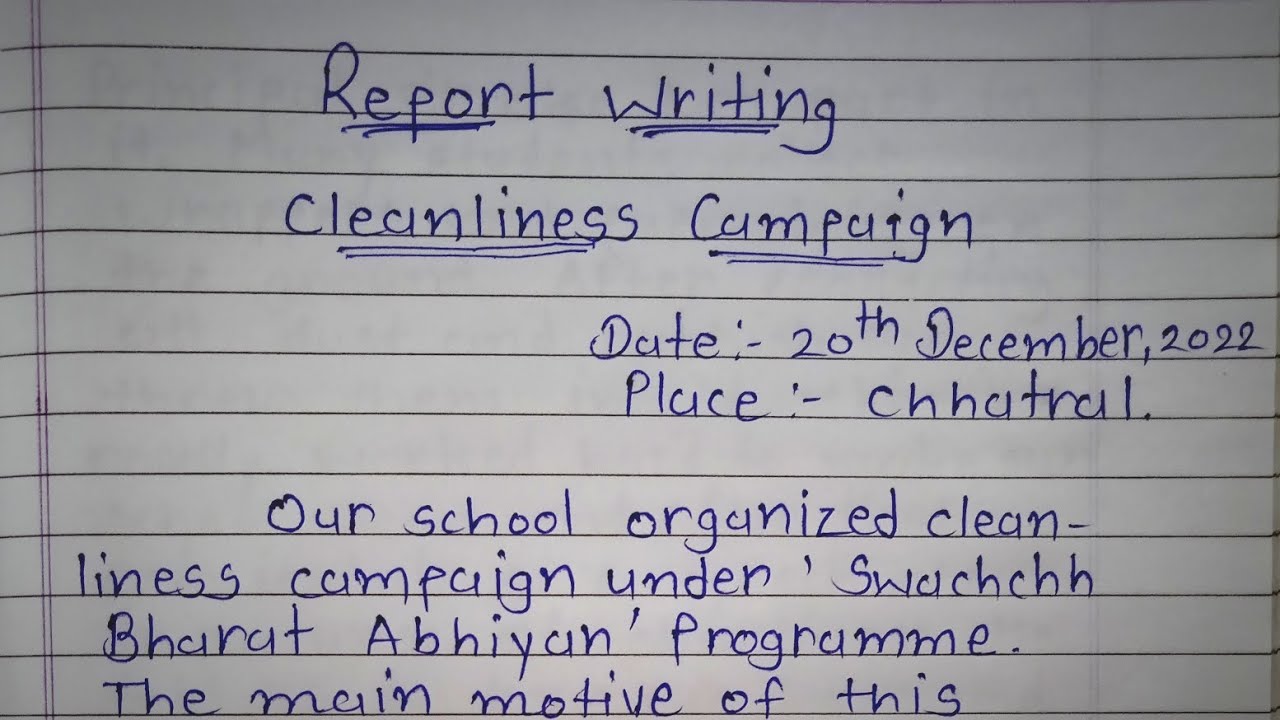 Report Writing
Cleanliness Campaign
Date:- 20th December, 2022
Place:- Chhatral.
Our school organized clean-
liness campaign under 'Swachchh
Bharat Abhiyan' Programme.
The main motive of this